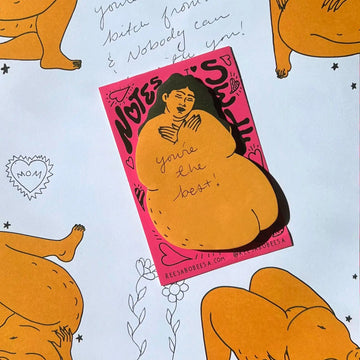 you're
bitch from
& Nobody can
you!
NOTES
TO
SELF
you're
the
best!
MOM
REESABOBEESA.COM